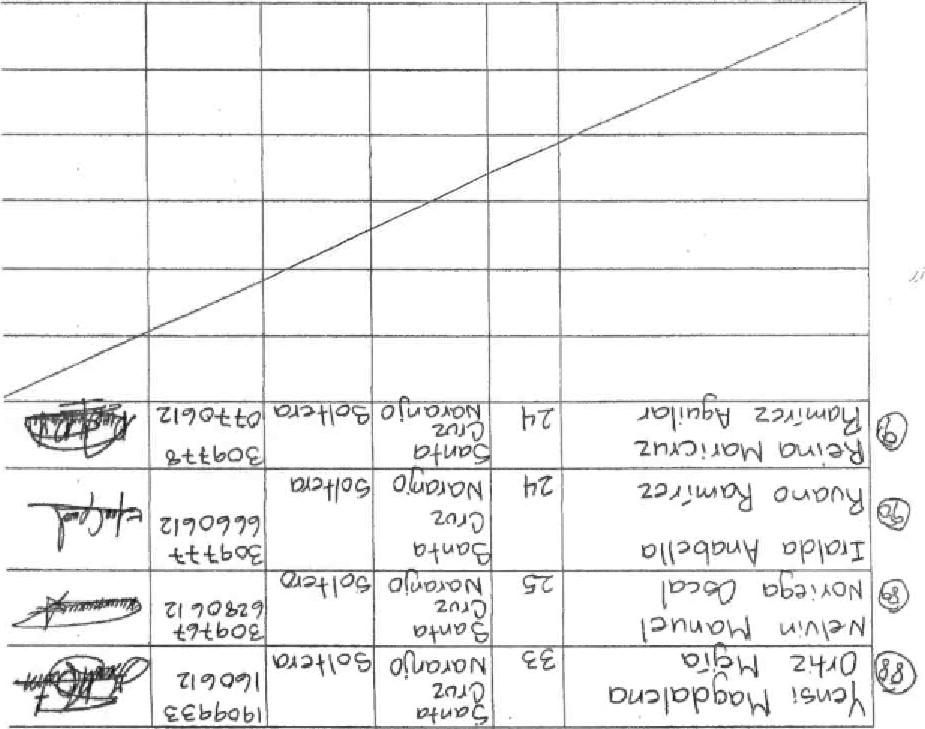 88
Yensi Magdalena
Ortiz Mejía
33
Santa
Cruz
Naranjo
Soltera
1909933
160612
89
Nelvin Manuel
Noriega Oscal
25
Santa
Cruz
Naranjo
Soltero
309767
6280612
90
Iralda Anabella
Ruano Ramírez
24
Santa
Cruz
Naranjo
Soltera
309777
6660612
Reina Maricruz
Ramírez Aguilar
24
Santa
Cruz
Naranjo
Soltera
309778
0770612